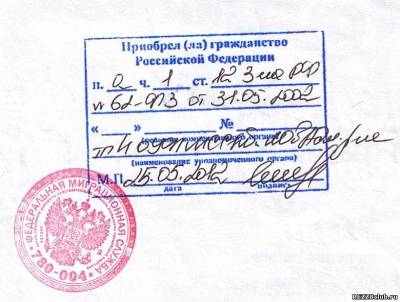 Приобрел (ла) гражданство
Российской Федерации
п. а ч. 1 ст. 12 З-на РФ
N 62-ФЗ от 31.05.2002
« » №
(наименование уполномоченного органа)
М.П. 25.05.2012
дата подпись
ФЕДЕРАЛЬНАЯ МИГРАЦИОННАЯ СЛУЖБА
780-004
REZZOclub.ru